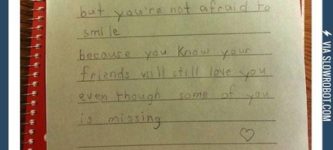 but you're not afraid to
smile
because you know your
friends will still love you
even though some of you
is missing
VIA SLOWROBOT.COM